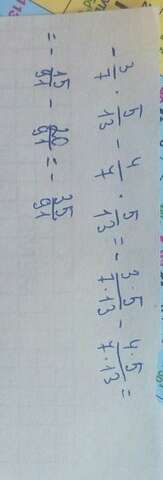 - 3/7 · 5/13 - 4/7 · 5/13 = - 3·5/7·13 - 4·5/7·13 =
= - 15/91 - 20/91 = - 35/91